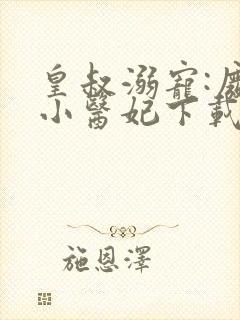 皇叔溺寵:
小醫妃下載
施恩澤